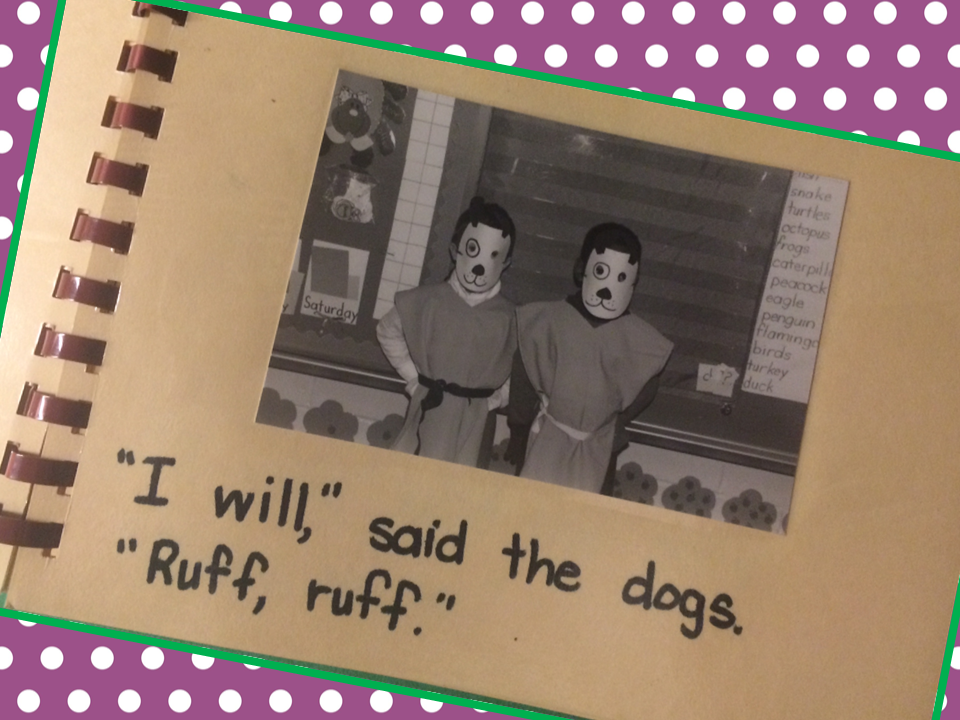 Saturday
snake
turtles
octopus
frogs
caterpill
peacock
eagle
penguin
flamingo
birds
turkey
duck
¿?
"I will," said the dogs.
"Ruff, ruff."